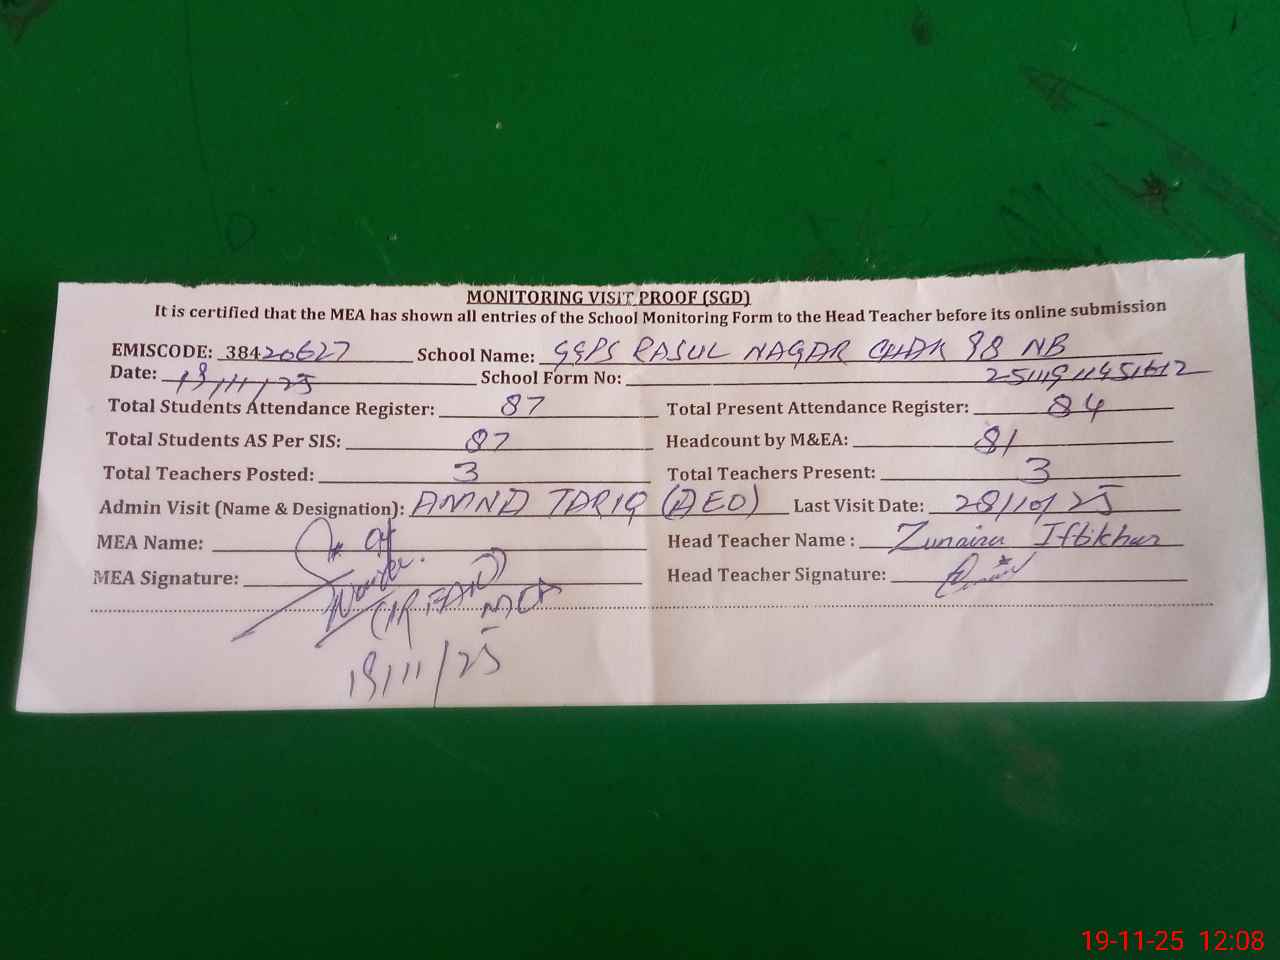 MONITORING VISIT PROOF (SGD)
It is certified that the MEA has shown all entries of the School Monitoring Form to the Head Teacher before its online submission
EMISCODE: 38420627 School Name: GGPS RASUL NAGAR CHAK 98 NB
Date: 19/11/25 School Form No:
Total Students Attendance Register: 87 Total Present Attendance Register: 84
Total Students AS Per SIS: 87 Headcount by M&EA: 81
Total Teachers Posted: 3 Total Teachers Present: 3
Admin Visit (Name & Designation): AMNA TARIQ (AEO) Last Visit Date: 28/10/25
MEA Name: Head Teacher Name : Zunaira Iftikhar
MEA Signature: Head Teacher Signature:
(IRFAN)
MEA
19/11/25
19-11-25 12:08